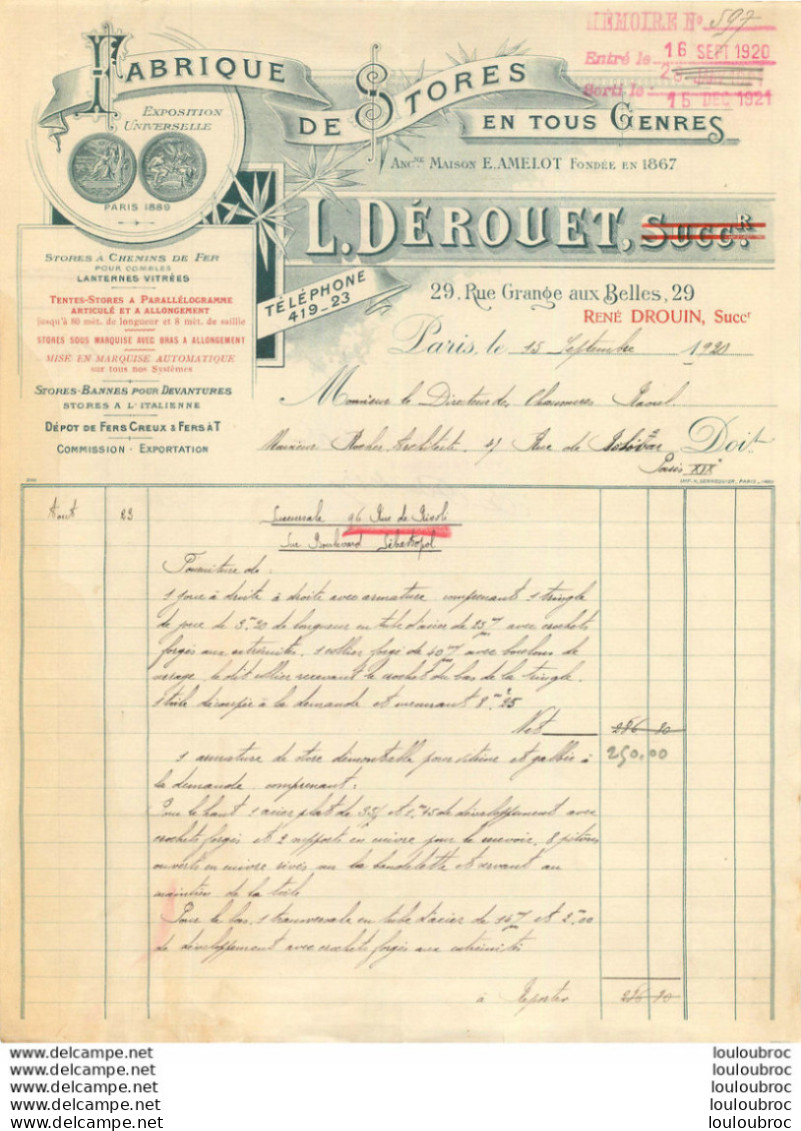 MÉMOIRE No 597
Entré le 16 SEPT 1920
Sorti le: 15 DEC 1921
FABRIQUE
DE STORES
EN TOUS GENRES
EXPOSITION
UNIVERSELLE
PARIS 1889
ANCNE MAISON E. AMELOT FONDÉE EN 1867
L. DÉROUET, SUCCR.
TÉLÉPHONE
419-23
29, Rue Grange aux Belles, 29
RENÉ DROUIN, Succr
STORES À CHEMINS DE FER
POUR COMBLES
LANTERNES VITRÉES
TENTES-STORES A PARALLÉLOGRAMME
ARTICULÉ ET A ALLONGEMENT
jusqu'à 80 mèt. de longueur et 8 mèt. de saillie
STORES SOUS MARQUISE AVEC BRAS A ALLONGEMENT
MISE EN MARQUISE AUTOMATIQUE
sur tous nos Systèmes
STORES-BANNES POUR DEVANTURES
STORES A L'ITALIENNE
DÉPOT DE FERS CREUX & FERS À T
COMMISSION - EXPORTATION
Paris, le 15 Septembre 1920
Monsieur le Directeur des Chaussures Raoul
Monsieur Rocher Architecte 4, Rue de Doit
Paris XIXe
Aout 23 Succursale 96 Rue de Rivoli
Sur Boulevard Sébastopol
Fourniture de.
1 store à droite à droite avec armature, comprenant 1 tringle
de 3.m20 de longueur en tube d'acier de 25m/m avec crochets
forgés aux extremités. 1 collier forgé de 40m/m avec boulons de
serrage, le dit collier recevant le crochet du bas de la tringle.
1 toile découpée à la demande et mesurant 8m25
Net 286 80
250.00
1 armature de store démontable pour vitrine et galbée à
la demande comprenant.
Pour le haut 1 acier plat de 35/ et 2.m45 de développement avec
crochets forgés et 2 supports en cuivre pour le recevoir, 8 pitons
ouverts en cuivre rivés sur la bandelette et servant au
maintien de la toile
Pour le bas, 1 transversale en tube d'acier de 16m/m et 2m00
de développement avec crochets forgés aux extremités
à Reporter 286 80
www.delcampe.net
www.delcampe.net
www.delcampe.net
www.delcampe.net
www.delcampe.net
louloubroc
louloubroc
louloubroc
louloubroc
louloubroc